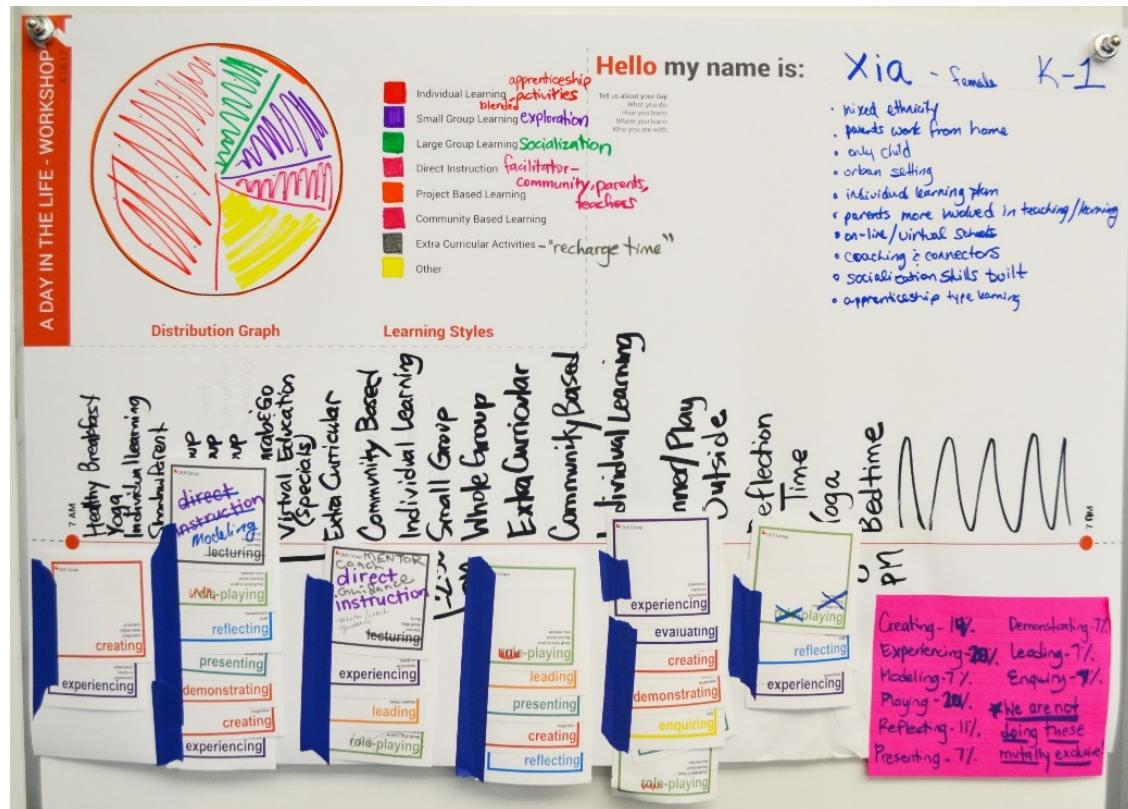 A DAY IN THE LIFE - WORKSHOP
Distribution Graph
Individual Learning
apprenticeship
activities
blended
Small Group Learning
exploration
Large Group Learning
Socialization
Direct Instruction
facilitator-
community, parents,
teachers
Project Based Learning
Community Based Learning
Extra Curricular Activities
- "recharge time"
Other
Learning Styles
Hello my name is:
Tell us about your day
What you do
How you learn
Where you learn
Who you are with
Xia - female K-1
• mixed ethnicity
• parents work from home
• only child
• urban setting
• individual learning plan
• parents more involved in teaching/learning
• on-line/virtual
• coaching & connectors
• socialization skills built
• apprenticeship type learning
7 AM
Healthy Breakfast
Yoga
Individual Learning
Virtual Education
(Specials)
Extra Curricular
Community Based
Individual Learning
Small Group
Whole Group
Extra Curricular
Community Based
dividual Learning
nner/Play
Outside
eflection
Time
Yoga
Bedtime
PM
7 PM
creating
experiencing
direct
instruction
Modeling
lecturing
-playing
reflecting
presenting
demonstrating
creating
experiencing
MENTOR
Coach
direct
Guidance
instruction
lecturing
experiencing
leading
role-playing
-playing
leading
presenting
creating
reflecting
experiencing
evaluating
creating
demonstrating
enquiring
-playing
-playing
reflecting
experiencing
Creating - % Demonstrating - 7%
Experiencing - 20% Leading - 7%
Modeling - 7% Enquiry - %
Playing - 20% * We are not
Reflecting - 11% doing these
Presenting - 7% mutally exclusive